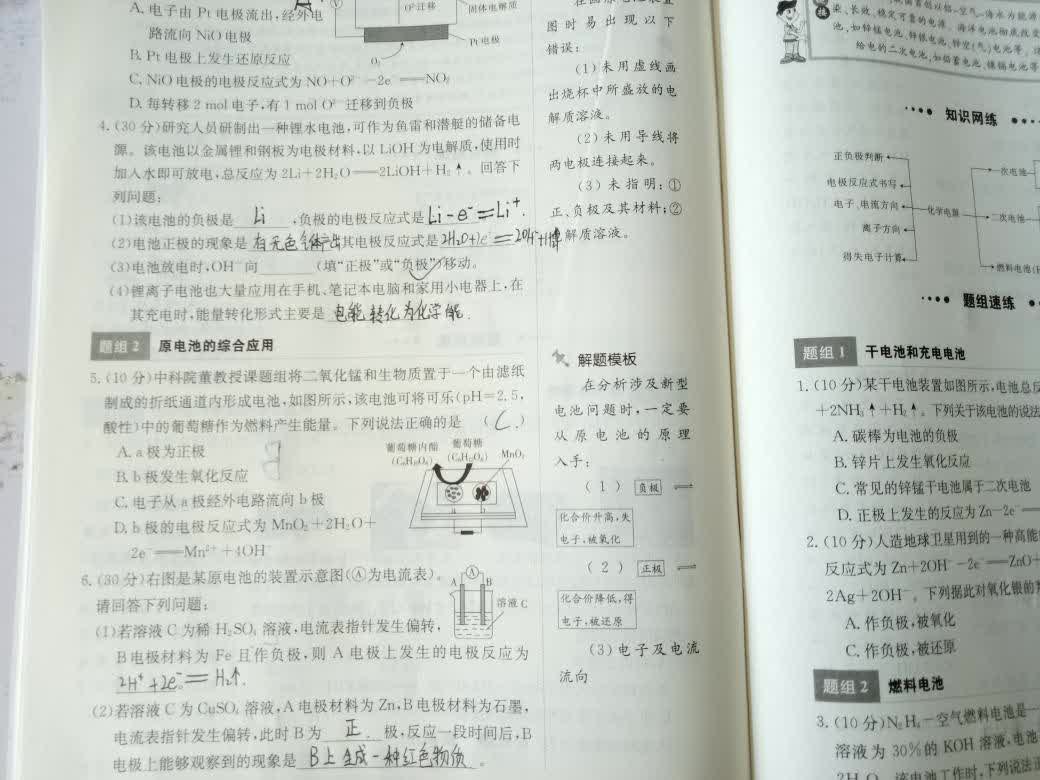 A. 电子由 Pt 电极流出,经外电
路流向 NiO 电极
B. Pt 电极上发生还原反应
C. NiO 电极的电极反应式为 NO+O²⁻-2e⁻══NO₂
D. 每转移 2 mol 电子,有 1 mol O²⁻ 迁移到负极
O²⁻迁移
固体电解质
Pt电极
O₂
4. (30 分)研究人员研制出一种锂水电池,可作为鱼雷和潜艇的储备电
源。该电池以金属锂和钢板为电极材料,以 LiOH 为电解质,使用时
加入水即可放电,总反应为 2Li+2H₂O══2LiOH+H₂↑。回答下
列问题:
(1)该电池的负极是 Li ,负极的电极反应式是 Li-e⁻=Li⁺.
(2)电池正极的现象是 有无色气体产出 其电极反应式是
(3)电池放电时,OH⁻向______(填“正极”或“负极”)移动。
(4)锂离子电池也大量应用在手机、笔记本电脑和家用小电器上,在
其充电时,能量转化形式主要是 电能转化为化学能.
题组 2 原电池的综合应用
5. (10 分)中科院董教授课题组将二氧化锰和生物质置于一个由滤纸
制成的折纸通道内形成电池,如图所示,该电池可将可乐(pH=2.5,
酸性)中的葡萄糖作为燃料产生能量。下列说法正确的是 ( C )
A. a 极为正极
B. b 极发生氧化反应
C. 电子从 a 极经外电路流向 b 极
D. b 极的电极反应式为 MnO₂+2H₂O+
2e⁻══Mn²⁺+4OH⁻
葡萄糖内酯 葡萄糖
(C₆H₁₀O₆) (C₆H₁₂O₆) MnO₂
a b
6. (30 分)右图是某原电池的装置示意图(Ⓐ为电流表)。
请回答下列问题:
(1)若溶液 C 为稀 H₂SO₄ 溶液,电流表指针发生偏转,
B 电极材料为 Fe 且作负极,则 A 电极上发生的电极反应为
2H⁺+2e⁻=H₂↑.
(2)若溶液 C 为 CuSO₄ 溶液,A 电极材料为 Zn,B 电极材料为石墨,
电流表指针发生偏转,此时 B 为 正 极,反应一段时间后,B
电极上能够观察到的现象是 B上生成一种红色物质 。
A Ⓐ B
溶液 C
图时易出现以下
错误:
(1)未用虚线画
出烧杯中所盛放的电
解质溶液。
(2)未用导线将
两电极连接起来。
(3)未指明:①
正、负极及其材料;②
解质溶液。
解题模板
在分析涉及新型
电池问题时,一定要
从原电池的原理
入手:
(1) 负极 ══
化合价升高,失
电子,被氧化
(2) 正极 ══
化合价降低,得
电子,被还原
(3)电子及电流
流向
染、长效、稳定可靠的电源。海洋电池彻底改变
给电的二次电池,如铅蓄电池、镍镉电池等
知识网练
正负极判断
电极反应式书写
电子、电流方向
离子方向
得失电子计算
化学电源
一次电池
二次电池
燃料电池
题组速练
题组 1 干电池和充电电池
1. (10 分)某干电池装置如图所示,电池总反
+2NH₃↑+H₂↑。下列关于该电池的说法
A. 碳棒为电池的负极
B. 锌片上发生氧化反应
C. 常见的锌锰干电池属于二次电池
D. 正极上发生的反应为 Zn-2e⁻
2. (10 分)人造地球卫星用到的一种高能
反应式为 Zn+2OH⁻-2e⁻══ZnO+
2Ag+2OH⁻。下列据此对氧化银的判
A. 作负极,被氧化
C. 作负极,被还原
题组 2 燃料电池
3. (10 分)N₂H₄-空气燃料电池是一
溶液为 30%的 KOH 溶液,电池
2H₂O。该电池工作时,下列说法正